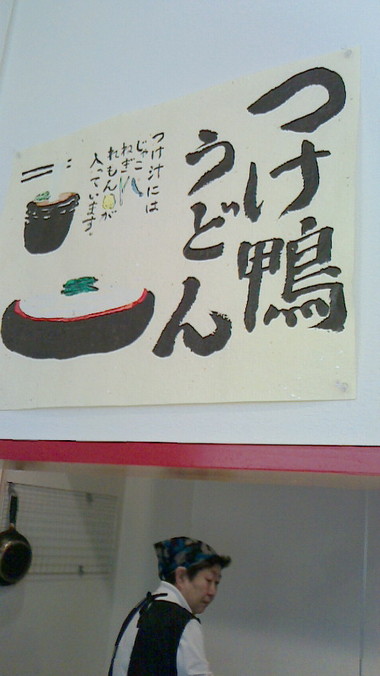 つけ鴨
うどん
つけ汁には
じゃこ
ねぎ
れもんが
入っています。